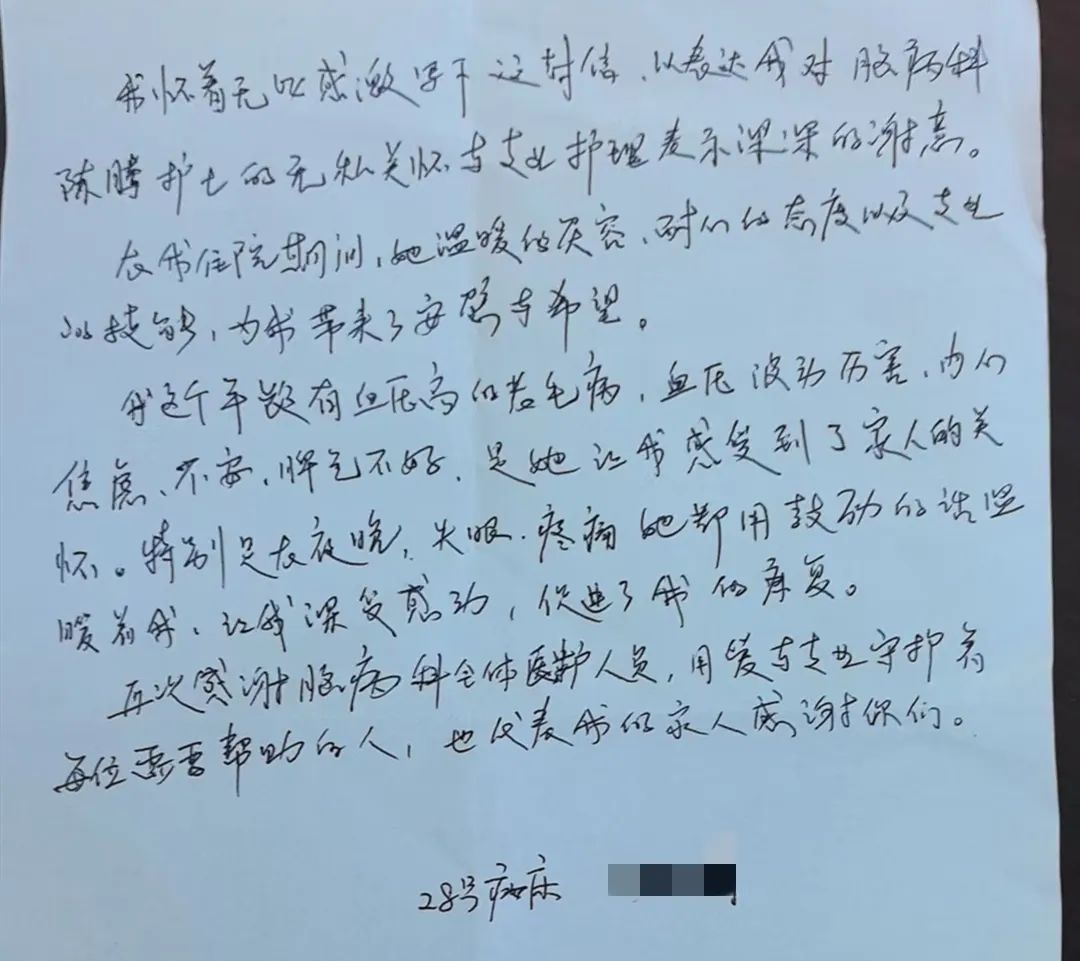 我怀着无比感激写下这封信、以表达我对脑病科
陈腾护士的无私关怀与专业护理表示深深的谢意。
在我住院期间，她温暖的笑容、耐心的态度以及专业
的技能，为我带来了安慰与希望。
我这个年龄有血压高的老毛病，血压波动厉害、内心
焦虑、不安、脾气不好、是她让我感受到了家人的关
怀。特别是在夜晚，失眠、疼痛她都用鼓励的话温
暖着我、让我深受感动，促进了我的康复。
再次感谢脑病科全体医护人员，用爱与专业守护着
每位需要帮助的人，也代表我的家人感谢你们。
28号病床